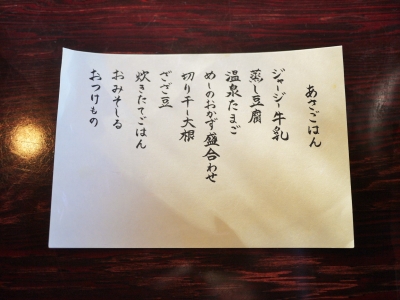 あさごはん
ジャージー牛乳
蒸し豆腐
温泉たまご
めしのおかず盛合わせ
切り干し大根
ざざ豆
炊きたてごはん
おみそしる
おつけもの